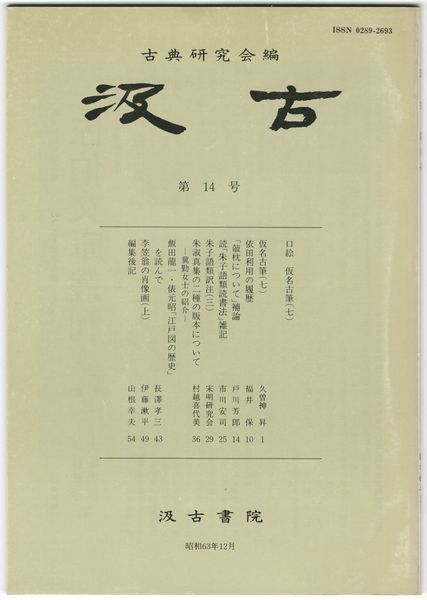 ISSN 0289-2693
古典研究会編
汲古
第 14 号
口絵 仮名古筆(七)
仮名古筆(七) 久曽神 昇 1
依田利用の履歴 福井 保 10
「攲枕について」補論 戸川芳郎 14
読「朱子語類読書法」雑記 市川安司 25
朱子語類訳注(三) 宋明研究会 29
朱淑真集の二種の版本について
―冀勤女士の紹介― 村越喜代美 36
飯田龍一・俵元昭「江戸図の歴史」
を読んで 長澤孝三 43
李笠翁の肖像画(上) 伊藤漱平 49
編集後記 山根幸夫 54
汲古書院
昭和63年12月